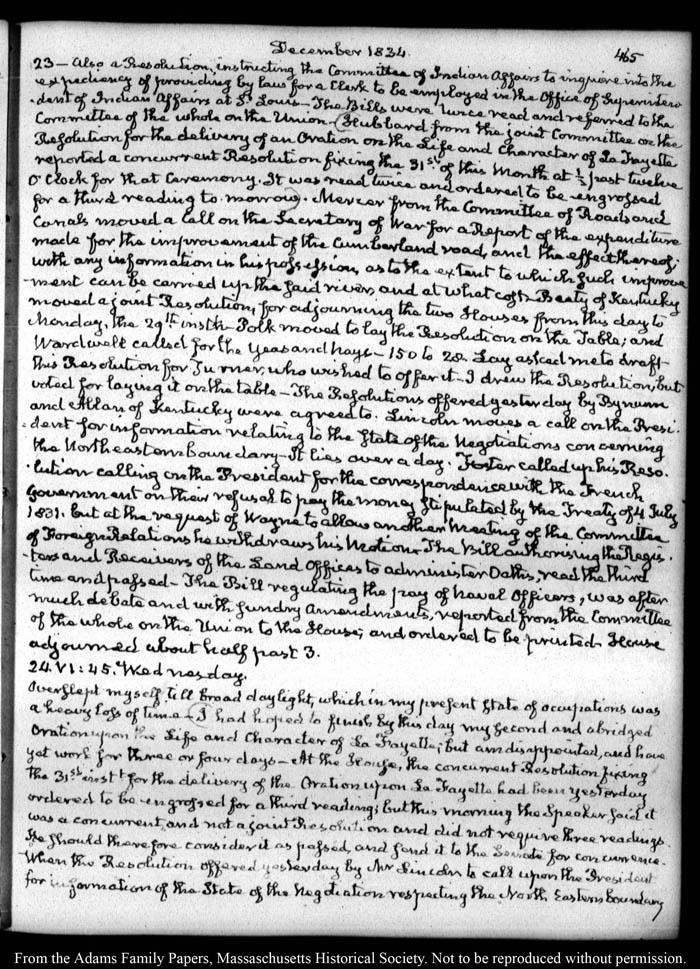 December 1834.
465
23 — Also a Resolution, instructing the Committee of Indian Affairs to inquire into the
expediency of providing by law for a Clerk to be employed in the Office of Superinten-
-dent of Indian Affairs at St. Louis — The Bills were twice read and referred to the
Committee of the whole on the Union — Hubbard from the joint Committee on the
Resolution for the delivery of an Oration on the Life and Character of La Fayette
reported a concurrent Resolution fixing the 31st of this Month at ½ past twelve
O'Clock for that Ceremony. It was read twice and ordered to be engrossed
for a third reading to morrow. Mercer from the Committee of Roads and
Canals moved a call on the Secretary of War for a Report of the expenditure
made for the improvement of the Cumberland road, and the effect thereof;
with any information in his possession, as to the extent to which such improve
-ment can be carried up the said river, and at what cost. Beaty of Kentucky
moved a joint Resolution, for adjourning the two Houses from this day to
Monday, the 29th inst. Polk moved to lay the Resolution on the Table; and
Wardwell called for the Yeas and Nays — 150 to 28. Lay asked me to draft
this Resolution for Turner, who wished to offer it — I drew the Resolution, but
voted for laying it on the table — The Resolutions offered yesterday by Bynum
and Allan of Kentucky were agreed to. Lincoln moves a call on the Presi-
-dent for information relating to the State of the Negotiations concerning
the Northeastern boundary — It lies over a day. Foster called up his Reso-
-lution calling on the President for the correspondence with the French
Government on their refusal to pay the money stipulated by the Treaty of 4 July
1831. but at the request of Wayne to allow another Meeting of the Committee
of Foreign Relations he withdraws his Motion — The Bill authorising the Regis-
-ters and Receivers of the Land Offices to administer Oaths, read the third
time and passed — The Bill regulating the pay of Naval Officers, was after
much debate and with sundry Amendments, reported from the Committee
of the whole on the Union to the House; and ordered to be printed. House
adjourned about half past 3.
24. VI:45. Wednesday.
Overslept myself till broad daylight, which in my present state of occupations was
a heavy loss of time — I had hoped to finish by this day my second and abridged
Oration upon the Life and Character of La Fayette; but am disappointed, and have
yet work for three or four days — At the House, the concurrent Resolution fixing
the 31st inst. for the delivery of the Oration upon La Fayette had been yesterday
ordered to be engrossed for a third reading; but this morning the Speaker said it
was a concurrent, and not a joint Resolution and did not require three readings.
He should therefore consider it as passed, and send it to the Senate for concurrence.
When the Resolution offered yesterday by Mr Lincoln to call upon the President
for information of the State of the Negotiation respecting the North Eastern boundary
From the Adams Family Papers, Massachusetts Historical Society. Not to be reproduced without permission.